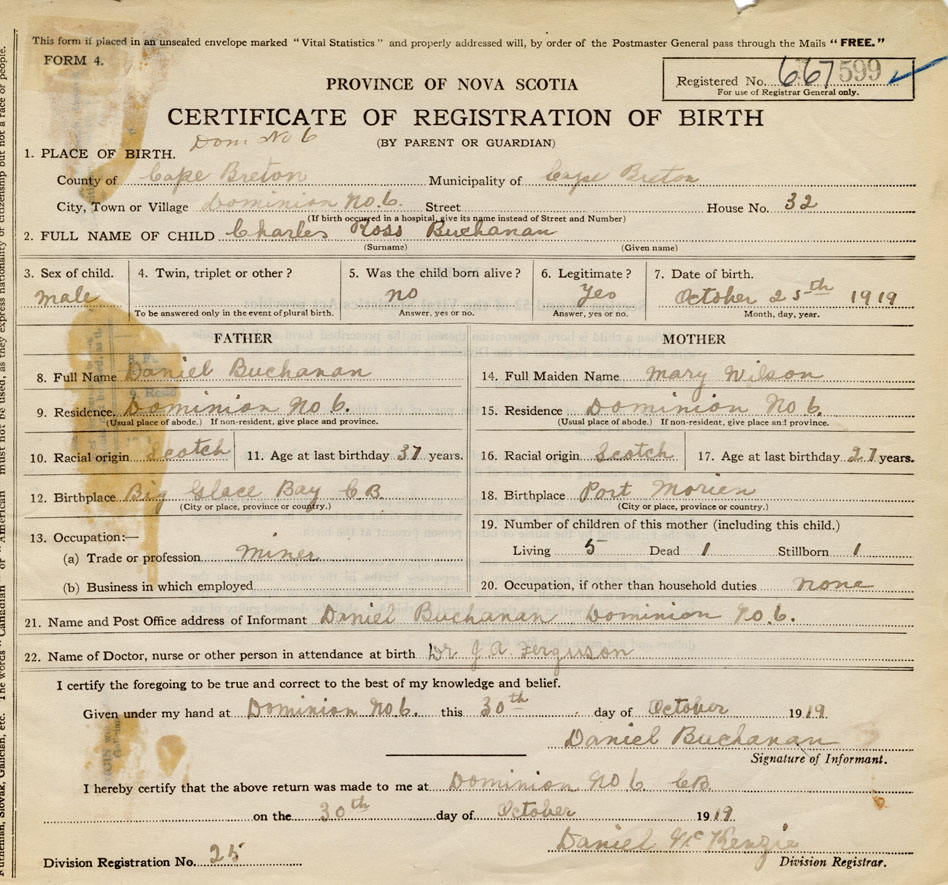 This form if placed in an unsealed envelope marked "Vital Statistics" and properly addressed will, by order of the Postmaster General pass through the Mails "FREE."
FORM 4.
Registered No. 667599
For use of Registrar General only.
PROVINCE OF NOVA SCOTIA
CERTIFICATE OF REGISTRATION OF BIRTH
Dom No 6
(BY PARENT OR GUARDIAN)
1. PLACE OF BIRTH.
County of Cape Breton Municipality of Cape Breton
City, Town or Village Dominion No. 6. Street House No. 32
(If birth occurred in a hospital, give its name instead of Street and Number)
2. FULL NAME OF CHILD Charles Ross Buchanan
(Surname) (Given name)
3. Sex of child. 4. Twin, triplet or other? 5. Was the child born alive? 6. Legitimate? 7. Date of birth.
male no Yes October 25th 1919
To be answered only in the event of plural birth. Answer, yes or no. Answer, yes or no. Month, day, year.
FATHER MOTHER
8. Full Name Daniel Buchanan 14. Full Maiden Name Mary Wilson
9. Residence. Dominion No 6. 15. Residence Dominion No 6.
(Usual place of abode.) If non-resident, give place and province. (Usual place of abode.) If non-resident, give place and province.
10. Racial origin Scotch 11. Age at last birthday 37 years. 16. Racial origin Scotch 17. Age at last birthday 27 years.
12. Birthplace Big Glace Bay C.B. 18. Birthplace Port Morien
(City or place, province or country.) (City or place, province or country.)
13. Occupation:— 19. Number of children of this mother (including this child.)
(a) Trade or profession miner Living 5 Dead 1 Stillborn 1
(b) Business in which employed 20. Occupation, if other than household duties none
21. Name and Post Office address of Informant Daniel Buchanan Dominion No. 6.
22. Name of Doctor, nurse or other person in attendance at birth Dr J. A. Ferguson
I certify the foregoing to be true and correct to the best of my knowledge and belief.
Given under my hand at Dominion No 6. this 30th day of October 1919.
Daniel Buchanan
Signature of Informant.
I hereby certify that the above return was made to me at Dominion No 6 C.B.
on the 30th day of October 1919.
Daniel McKenzie
Division Registration No. 25 Division Registrar.
Ruthenian, Slovak, Galician, etc. The words "Canadian" or "American" must not be used, as they express nationality or citizenship but not a race or people.